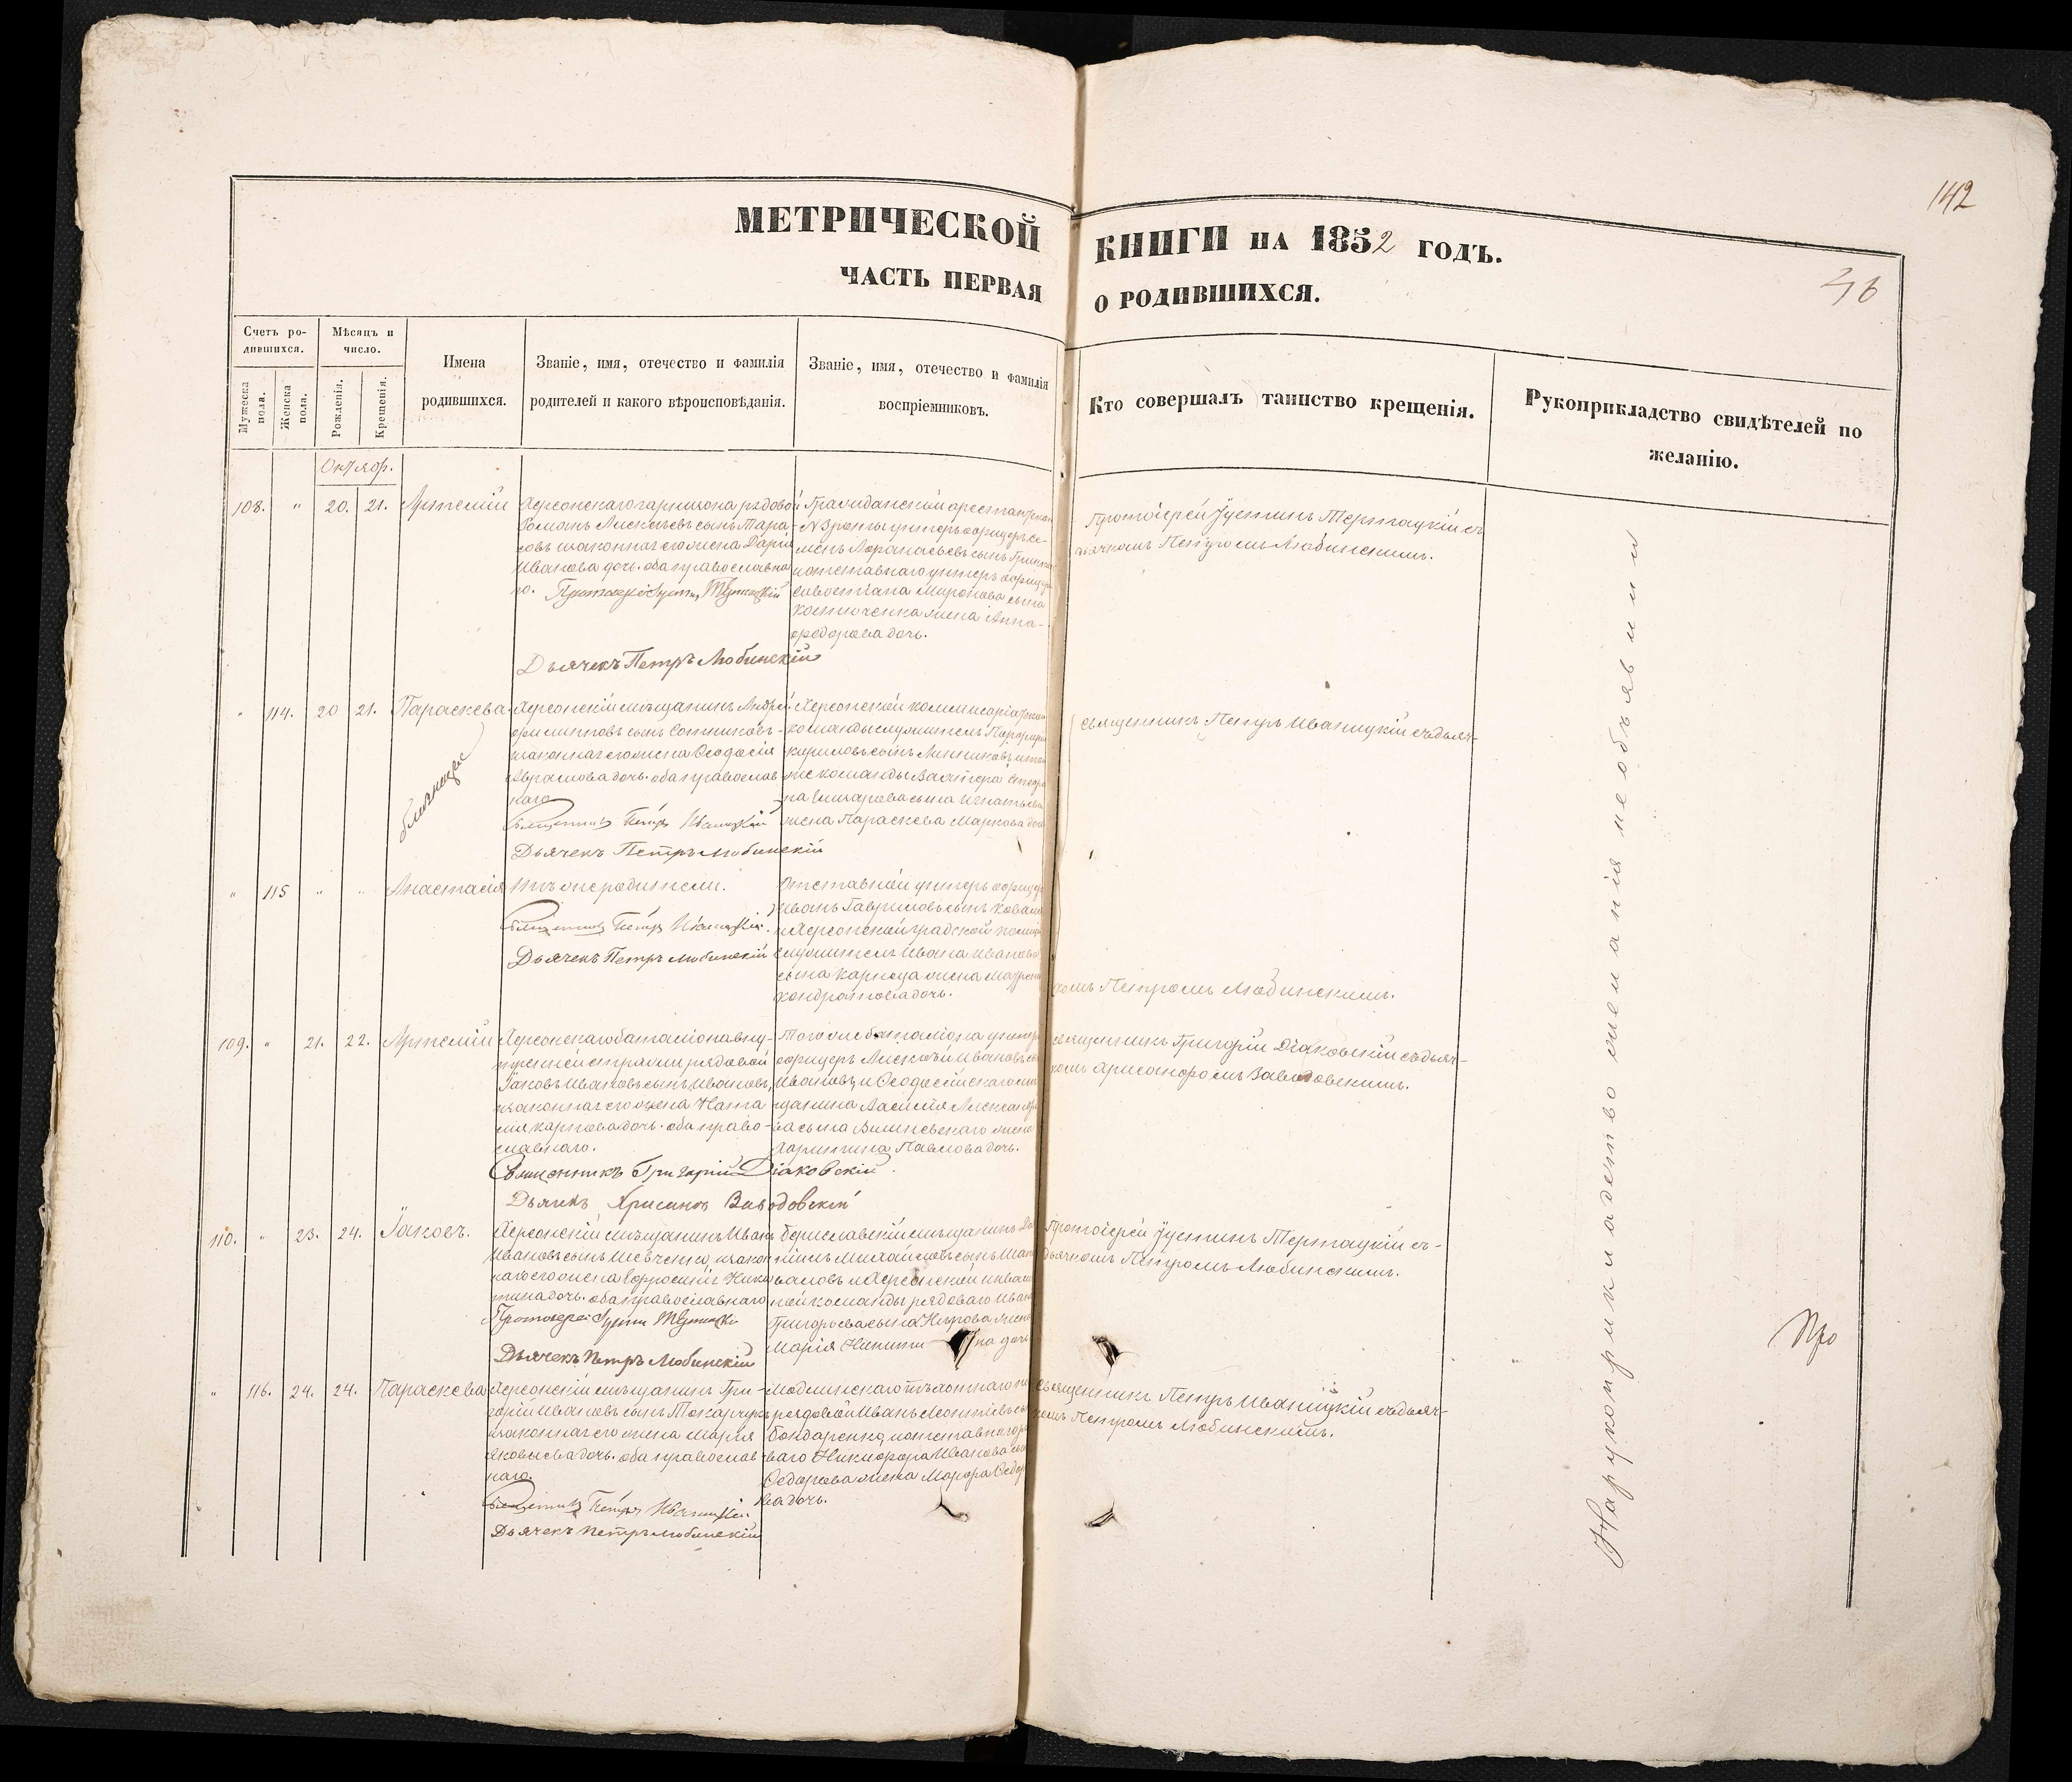 142
МЕТРИЧЕСКОЙ КНИГИ НА 1852 ГОДЪ.
ЧАСТЬ ПЕРВАЯ О РОДИВШИХСЯ.
46
Счетъ родившихся.
Мужеска пола.
Женска пола.
Мѣсяцъ и число.
Рожденія.
Крещенія.
Имена
родившихся.
Званіе, имя, отечество и фамилія
родителей и какого вѣроисповѣданія.
Званіе, имя, отечество и фамилія
воспріемниковъ.
Кто совершалъ таинство крещенія.
Рукоприкладство свидѣтелей по
желанію.
Октябр.
108. " 20. 21. Артемій
Херсонскаго гарнизона рядовой
Романъ Алексѣевъ сынъ Тара-
совъ и законная его жена Дарія
Иванова дочь. оба православна
го.
Дьячекъ Петръ Любинскій
унтеръ офицеръ Се-
менъ Афанасьевъ сынъ
и отставнаго унтеръ офицера
Миронова сына
Костюченка жена Анна
Федорова дочь.
Протоіерей Іустинъ Тертацкій съ
дьячкомъ Петромъ Любинскимъ.
" 114. 20 21. Параскева
близнецы
Херсонскій мѣщанинъ Андрей
Филиповъ сынъ Сотниковъ
и законная его жена Ѳеодосія
Аврамова дочь. оба православ
наго
Священникъ Петръ Иваницкій
Дьячекъ Петръ Любинскій
команды служитель
Кириловъ сынъ
же команды
сына Игнатьева
жена Параскева Маркова дочь
Священникъ Петръ Иваницкій съ дьяч-
" 115 " " Анастасія
Тѣ же родители.
Священникъ Петръ Иваницкій.
Дьячекъ Петръ Любинскій
Отставный унтеръ офицеръ
Иванъ Гавриловъ сынъ
и Херсонской градской полиціи
служителя Ивана Иванова
сына жена
Кондратова дочь.
комъ Петромъ Любинскимъ.
109. " 21. 22. Артемій
Херсонскаго баталіона вну-
тренней стражи рядовой
Іаковъ Ивановъ сынъ Ивановъ,
и законная его жена Ната
лія Карпова дочь. оба право-
славнаго.
Священникъ Григорій Діаковскій.
Дьячекъ Хрисанфъ Заводовскій
Того же баталіона унтеръ
офицеръ Алексѣй Ивановъ сынъ
Ивановъ, и Ѳеодосійскаго мѣ
щанина
ва сына жена
Павлова дочь.
Священникъ Григорій Діаковскій съ дьяч-
комъ Хрисанфомъ Заводовскимъ.
110. " 23. 24. Іаковъ.
Херсонскій мѣщанинъ Иванъ
Ивановъ сынъ Шевченко, и закон
ная его жена Евфросинія Ники
тина дочь. оба православнаго
Дьячекъ Петръ Любинскій
Бериславскій мѣщанинъ
Михайловъ сынъ
и Херсонской инвалид
ной команды рядоваго Ивана
Григорьева сына жена
Марія Никити на дочь
Протоіерей Іустинъ Тертацкій съ
дьячкомъ Петромъ Любинскимъ.
" 116. 24. 24. Параскева
Херсонскій мѣщанинъ Гри-
горій Ивановъ сынъ Токарчукъ
и законная его жена Марія
Яковлева дочь. оба православ
наго.
Священникъ Петръ Иваницкій
Дьячекъ Петръ Любинскій
Модлинскаго пѣхотнаго
рядовой Иванъ Леонтіевъ сынъ
Бондаренко, и отставнаго рядо
ваго Никифора Иванова сына
Ѳедорова жена Ѳедоро
ва дочь.
Священникъ Петръ Иваницкій съ дьяч-
комъ Петромъ Любинскимъ.
На рукоприкладство желанія необъявили
Про